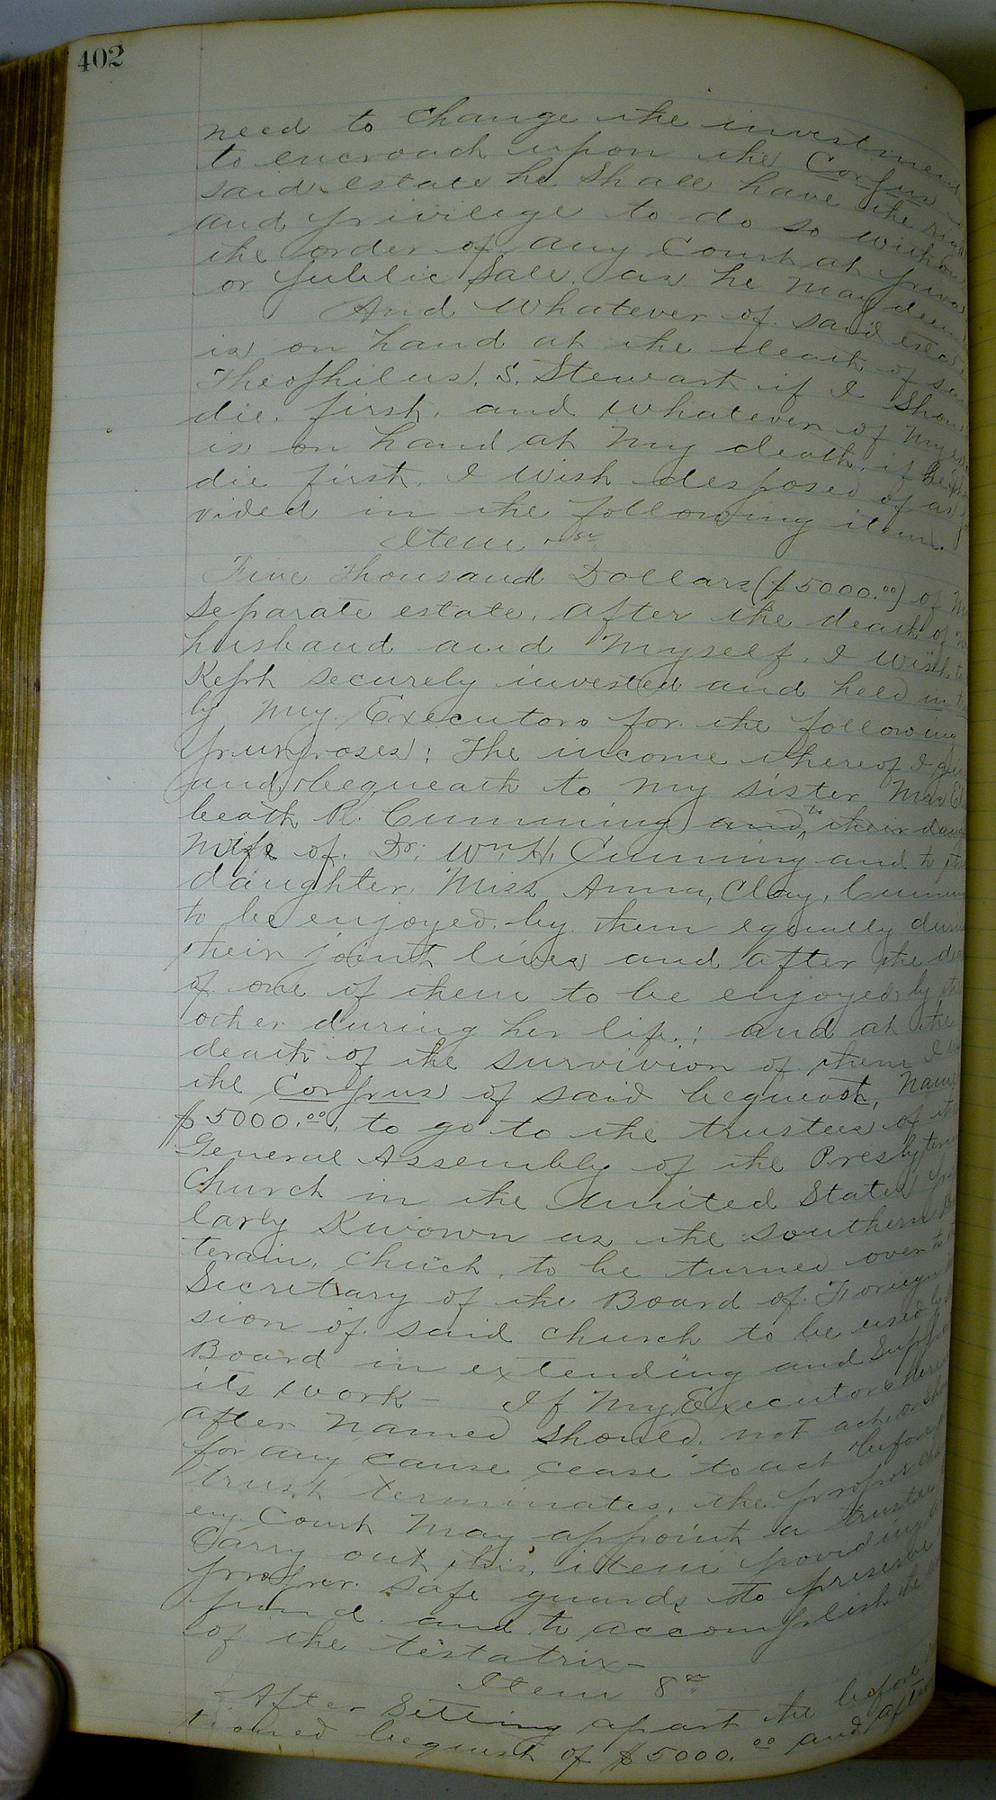 402
need to change the investment
to encroach upon the Corpus
said estate he shall have the right
and privilege to do so without
the order of any Court at private
or public sale, as he may deem
And whatever of said estate
is on hand at the death of said
Theophilus, S. Stewart if I should
die, first, and whatever of my es
is on hand at my death, if he
die first, I wish desposed of as
vided in the following item.
Item
Five Thousand Dollars ($5000.00) of my
separate estate, after the death of
husband and myself, I wish
Kept securely invested and held in
by my Executors for the following
purposes: The income thereof I give
and bequeath to my sister Mrs El
beath R. Cumming and, their
Wife of Dr. Wm H. Cumming and to
daughter Miss Anna, Clay, Cumm
to be enjoyed by them equally dur
their joint lives and after the de
of one of them to be enjoyed by the
other during her life; and at the
death of the survivion of them I
the Corpus of said bequest, Name
$5000.00, to go to the trustees of the
General Assembly of the Presbyteri
Church in the United States
larly Known as the Southern
terain, Chuch, to be turned over to
Secretary of the Board of Foreign
sion of said church to be used by
Board in extending and Supp
its work — If my Executors here
after Named should, not act or sho
for any cause cease to act before
trust terminates, the proper
ery Court may appoint a trustee
Carry out this, item providing
proper safe guards to preserve
fund and to accomplish the
of the testatrix—
Item 8th
After Setting apart the before
tioned bequest of $5000.00 and after